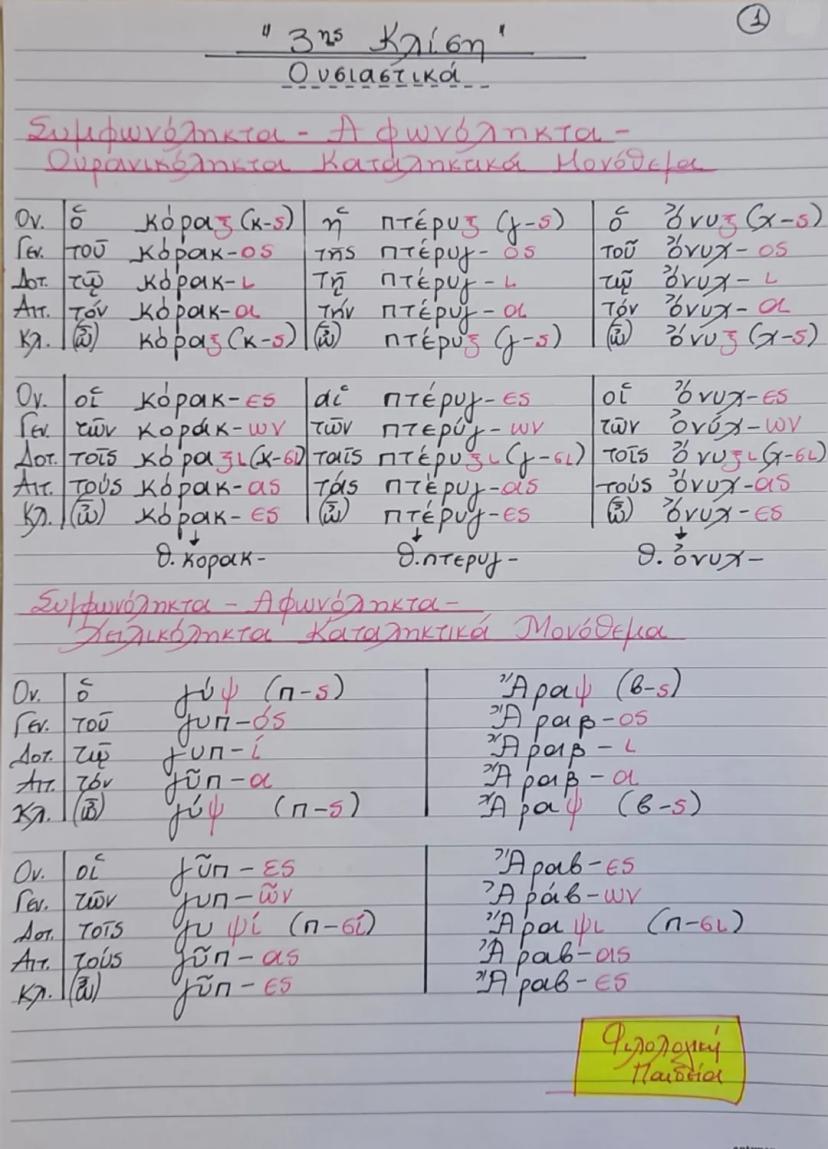 1
"3ης Κλίση"
Ουσιαστικά
Συμφωνόληκτα - Αφωνόληκτα -
Ουρανικόληκτα Καταληκτικά Μονόθεμα
Ον. ὁ κόραξ (κ-ς) ἡ πτέρυξ (γ-ς) ὁ ὄνυξ (χ-ς)
Γεν. τοῦ κόρακ-ος τῆς πτέρυγ-ος τοῦ ὄνυχ-ος
Δοτ. τῷ κόρακ-ι τῇ πτέρυγ-ι τῷ ὄνυχ-ι
Αιτ. τόν κόρακ-α τήν πτέρυγ-α τόν ὄνυχ-α
Κλ. (ὦ) κόραξ (κ-ς) (ὦ) πτέρυξ (γ-ς) (ὦ) ὄνυξ (χ-ς)
Ον. οἱ κόρακ-ες αἱ πτέρυγ-ες οἱ ὄνυχ-ες
Γεν. τῶν κοράκ-ων τῶν πτερύγ-ων τῶν ὀνύχ-ων
Δοτ. τοῖς κόραξι (κ-σι) ταῖς πτέρυξι (γ-σι) τοῖς ὄνυξι (χ-σι)
Αιτ. τούς κόρακ-ας τάς πτέρυγ-ας τούς ὄνυχ-ας
Κλ. (ὦ) κόρακ-ες (ὦ) πτέρυγ-ες (ὦ) ὄνυχ-ες
θ. κορακ- θ. πτερυγ- θ. ὀνυχ-
Συμφωνόληκτα - Αφωνόληκτα -
Χειλικόληκτα Καταληκτικά Μονόθεμα
Ον. ὁ γύψ (π-ς) Ἄραψ (β-ς)
Γεν. τοῦ γυπ-ός Ἄραβ-ος
Δοτ. τῷ γυπ-ί Ἄραβ-ι
Αιτ. τόν γῦπ-α Ἄραβ-α
Κλ. (ὦ) γύψ (π-ς) Ἄραψ (β-ς)
Ον. οἱ γῦπ-ες Ἄραβ-ες
Γεν. τῶν γυπ-ῶν Ἀράβ-ων
Δοτ. τοῖς γυψί (π-σί) Ἄραψι (π-σι)
Αιτ. τούς γῦπ-ας Ἄραβ-ας
Κλ. (ὦ) γῦπ-ες Ἄραβ-ες
Φιλολογική
Παιδεία